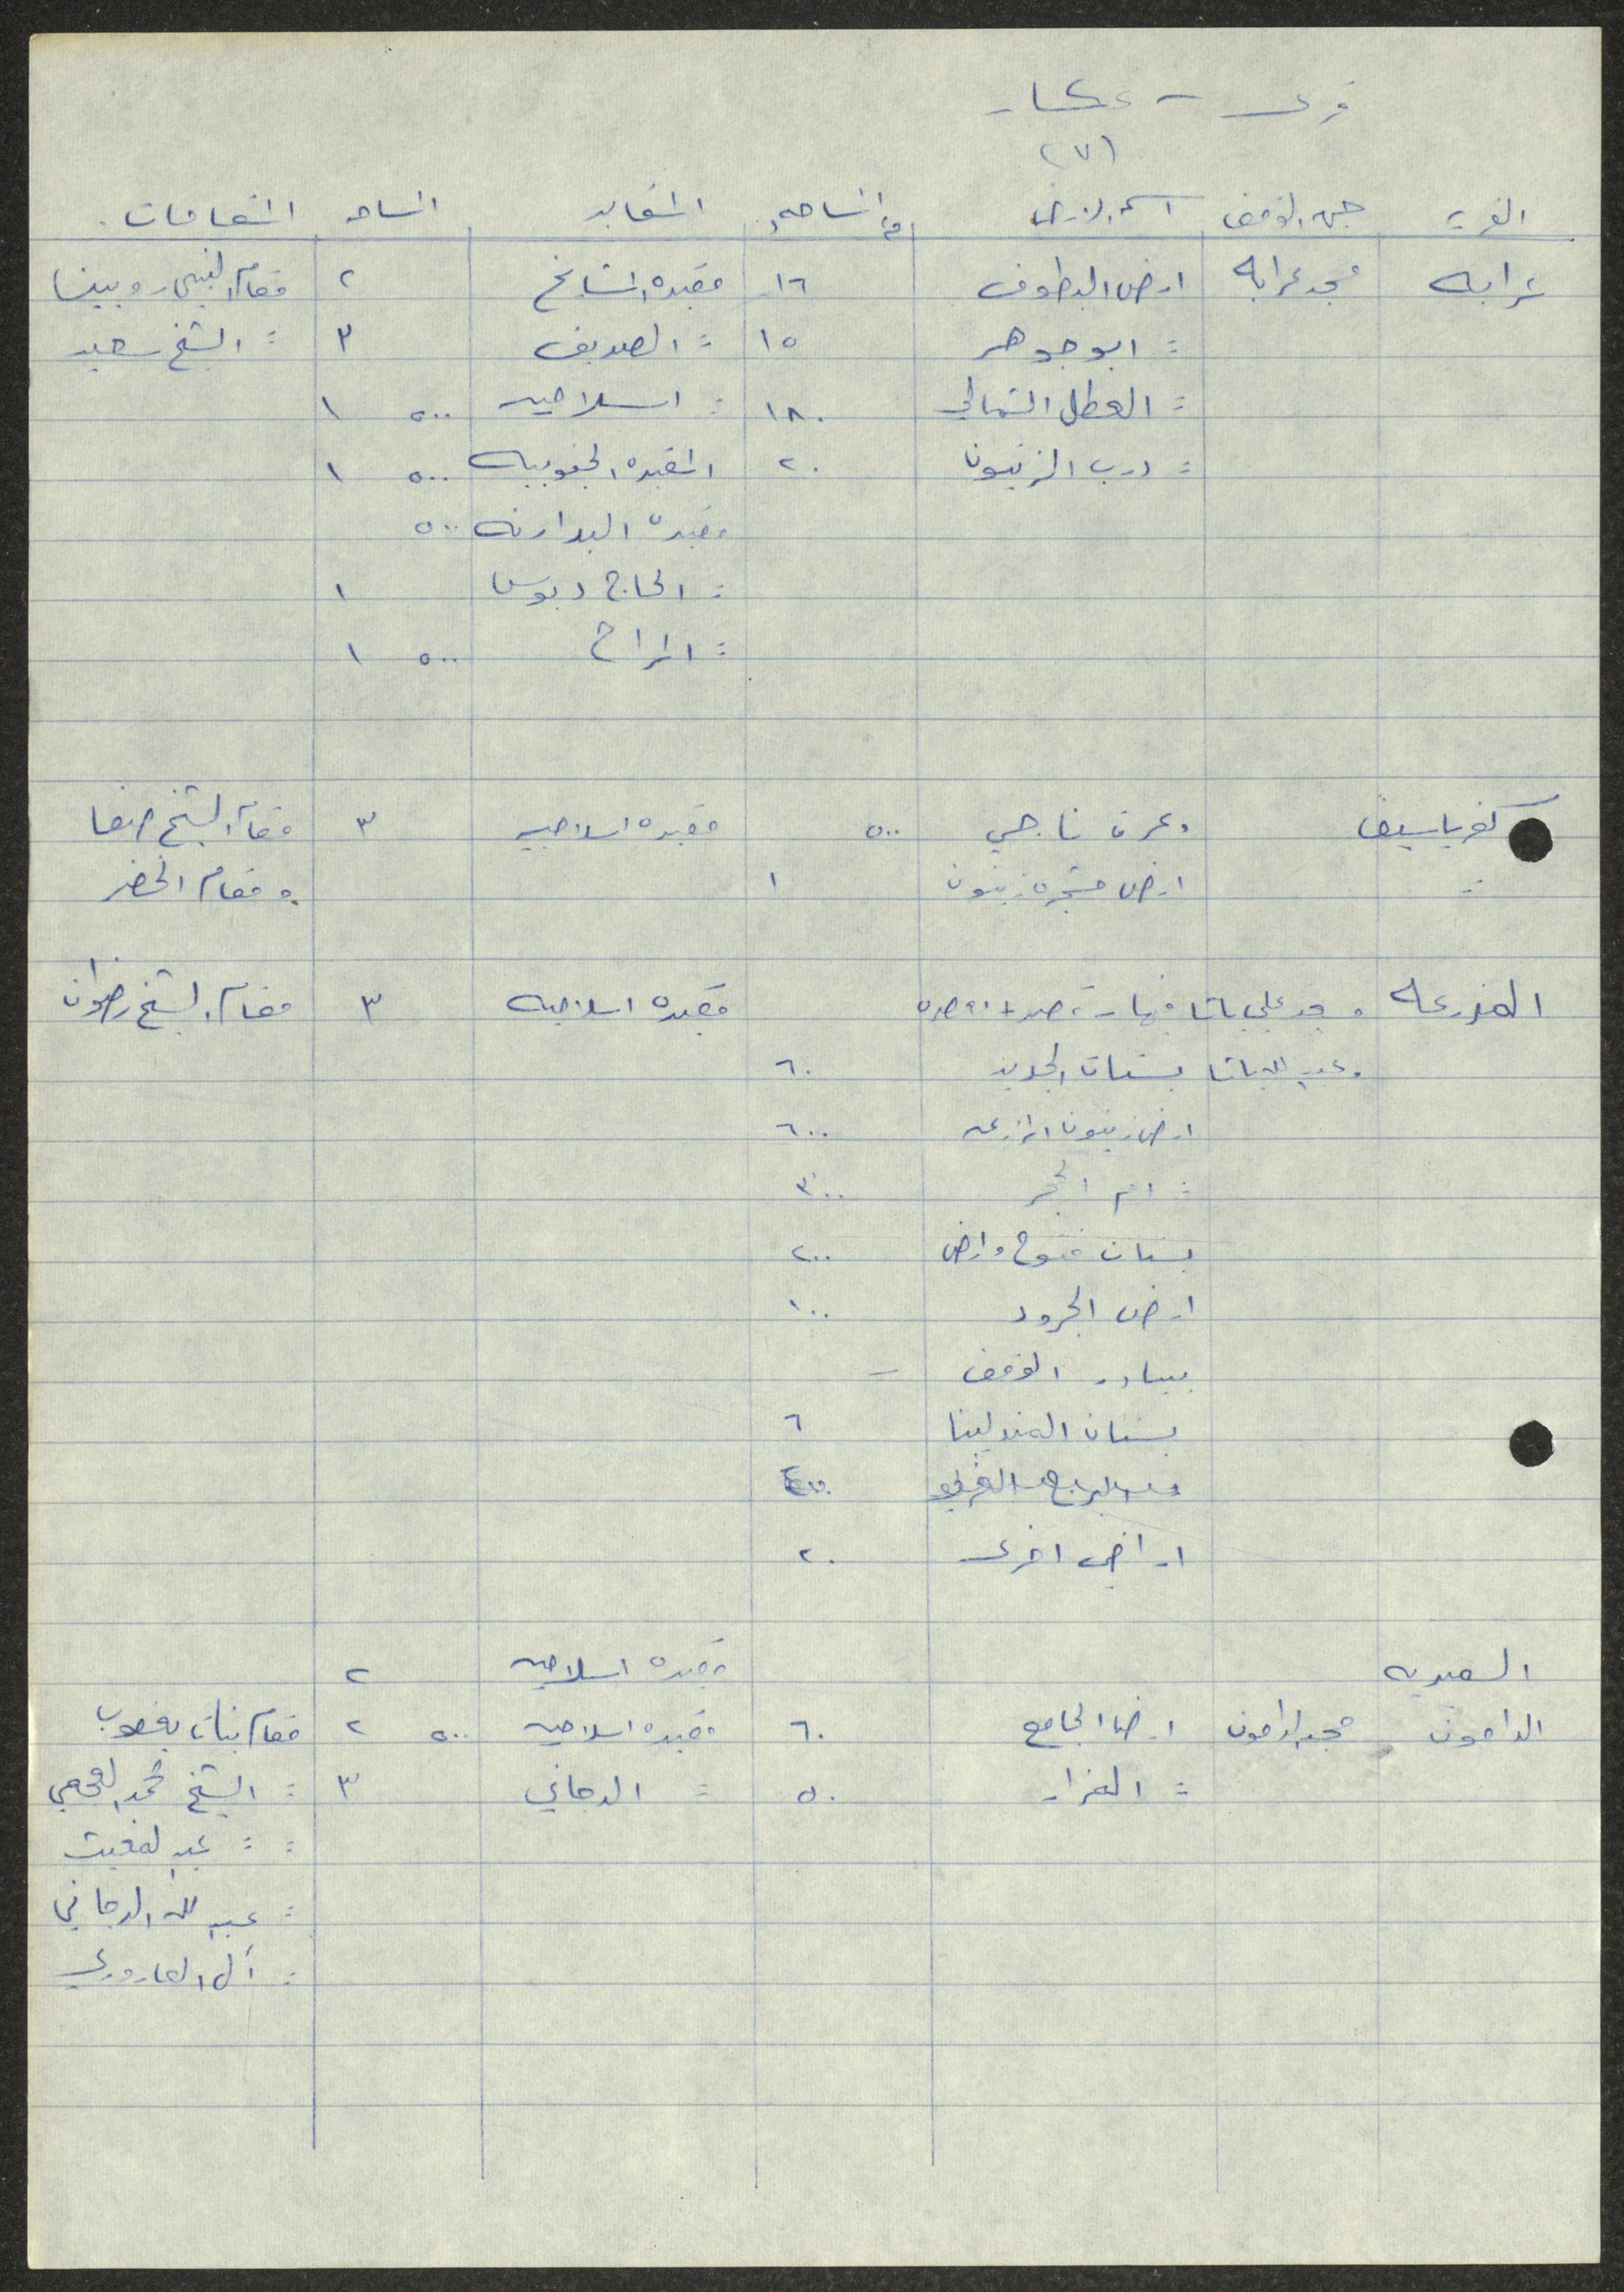 قرى - عكا
(٧)
القرية جهة الوقف اسم الارض المساحه المقابر المساحه المقامات
عرابه مسجد عرابه ارض البطوف ١٦ مقبرة المشايخ ٢ مقام النبي روبين
: ابو جوهر ١٥ : الصديق ٣ : الشيخ سعيد
: العطل الشمالي ١٨٠ : اسلاميه ٥٠٠ ١
: درب الزيتون ٢٠ المقبره الجنوبيه ٥٠٠ ١
مقبرة البدارنه ٥٠٠
: الحاج دبوس ١
: المراح ٥٠٠ ١
كفرياسيف وعرة ناجي ٥٠٠ مقبره اسلاميه ٣ مقام الشيخ
: ارض مشجره زيتون ١ ومقام الخضر
المزرعه علي باشا مقبره اسلاميه ٣ مقام الشيخ رضوان
وعبد الله باشا بستان الجديد ٦٠
ارض زيتون المزرعه ٦٠٠
: ام الحجر ٣٠٠
بستان فتوح وارض ٢٠٠
ارض الجرود ١٠٠
بيادر الوقف -
بستان المندلينا ٦
اراضي اخرى ٢٠
السميريه مقبره اسلاميه ٢
الدامون مسجد الدامون ارض الجامع ٦٠ مقبره اسلاميه ٥٠٠ ٢ مقام بنات يعقوب
: المزار ٥٠ : الدجاني ٣ : الشيخ محمد العجمي
: : عبد المغيث
: عبد الله الدجاني
: آل العاروري